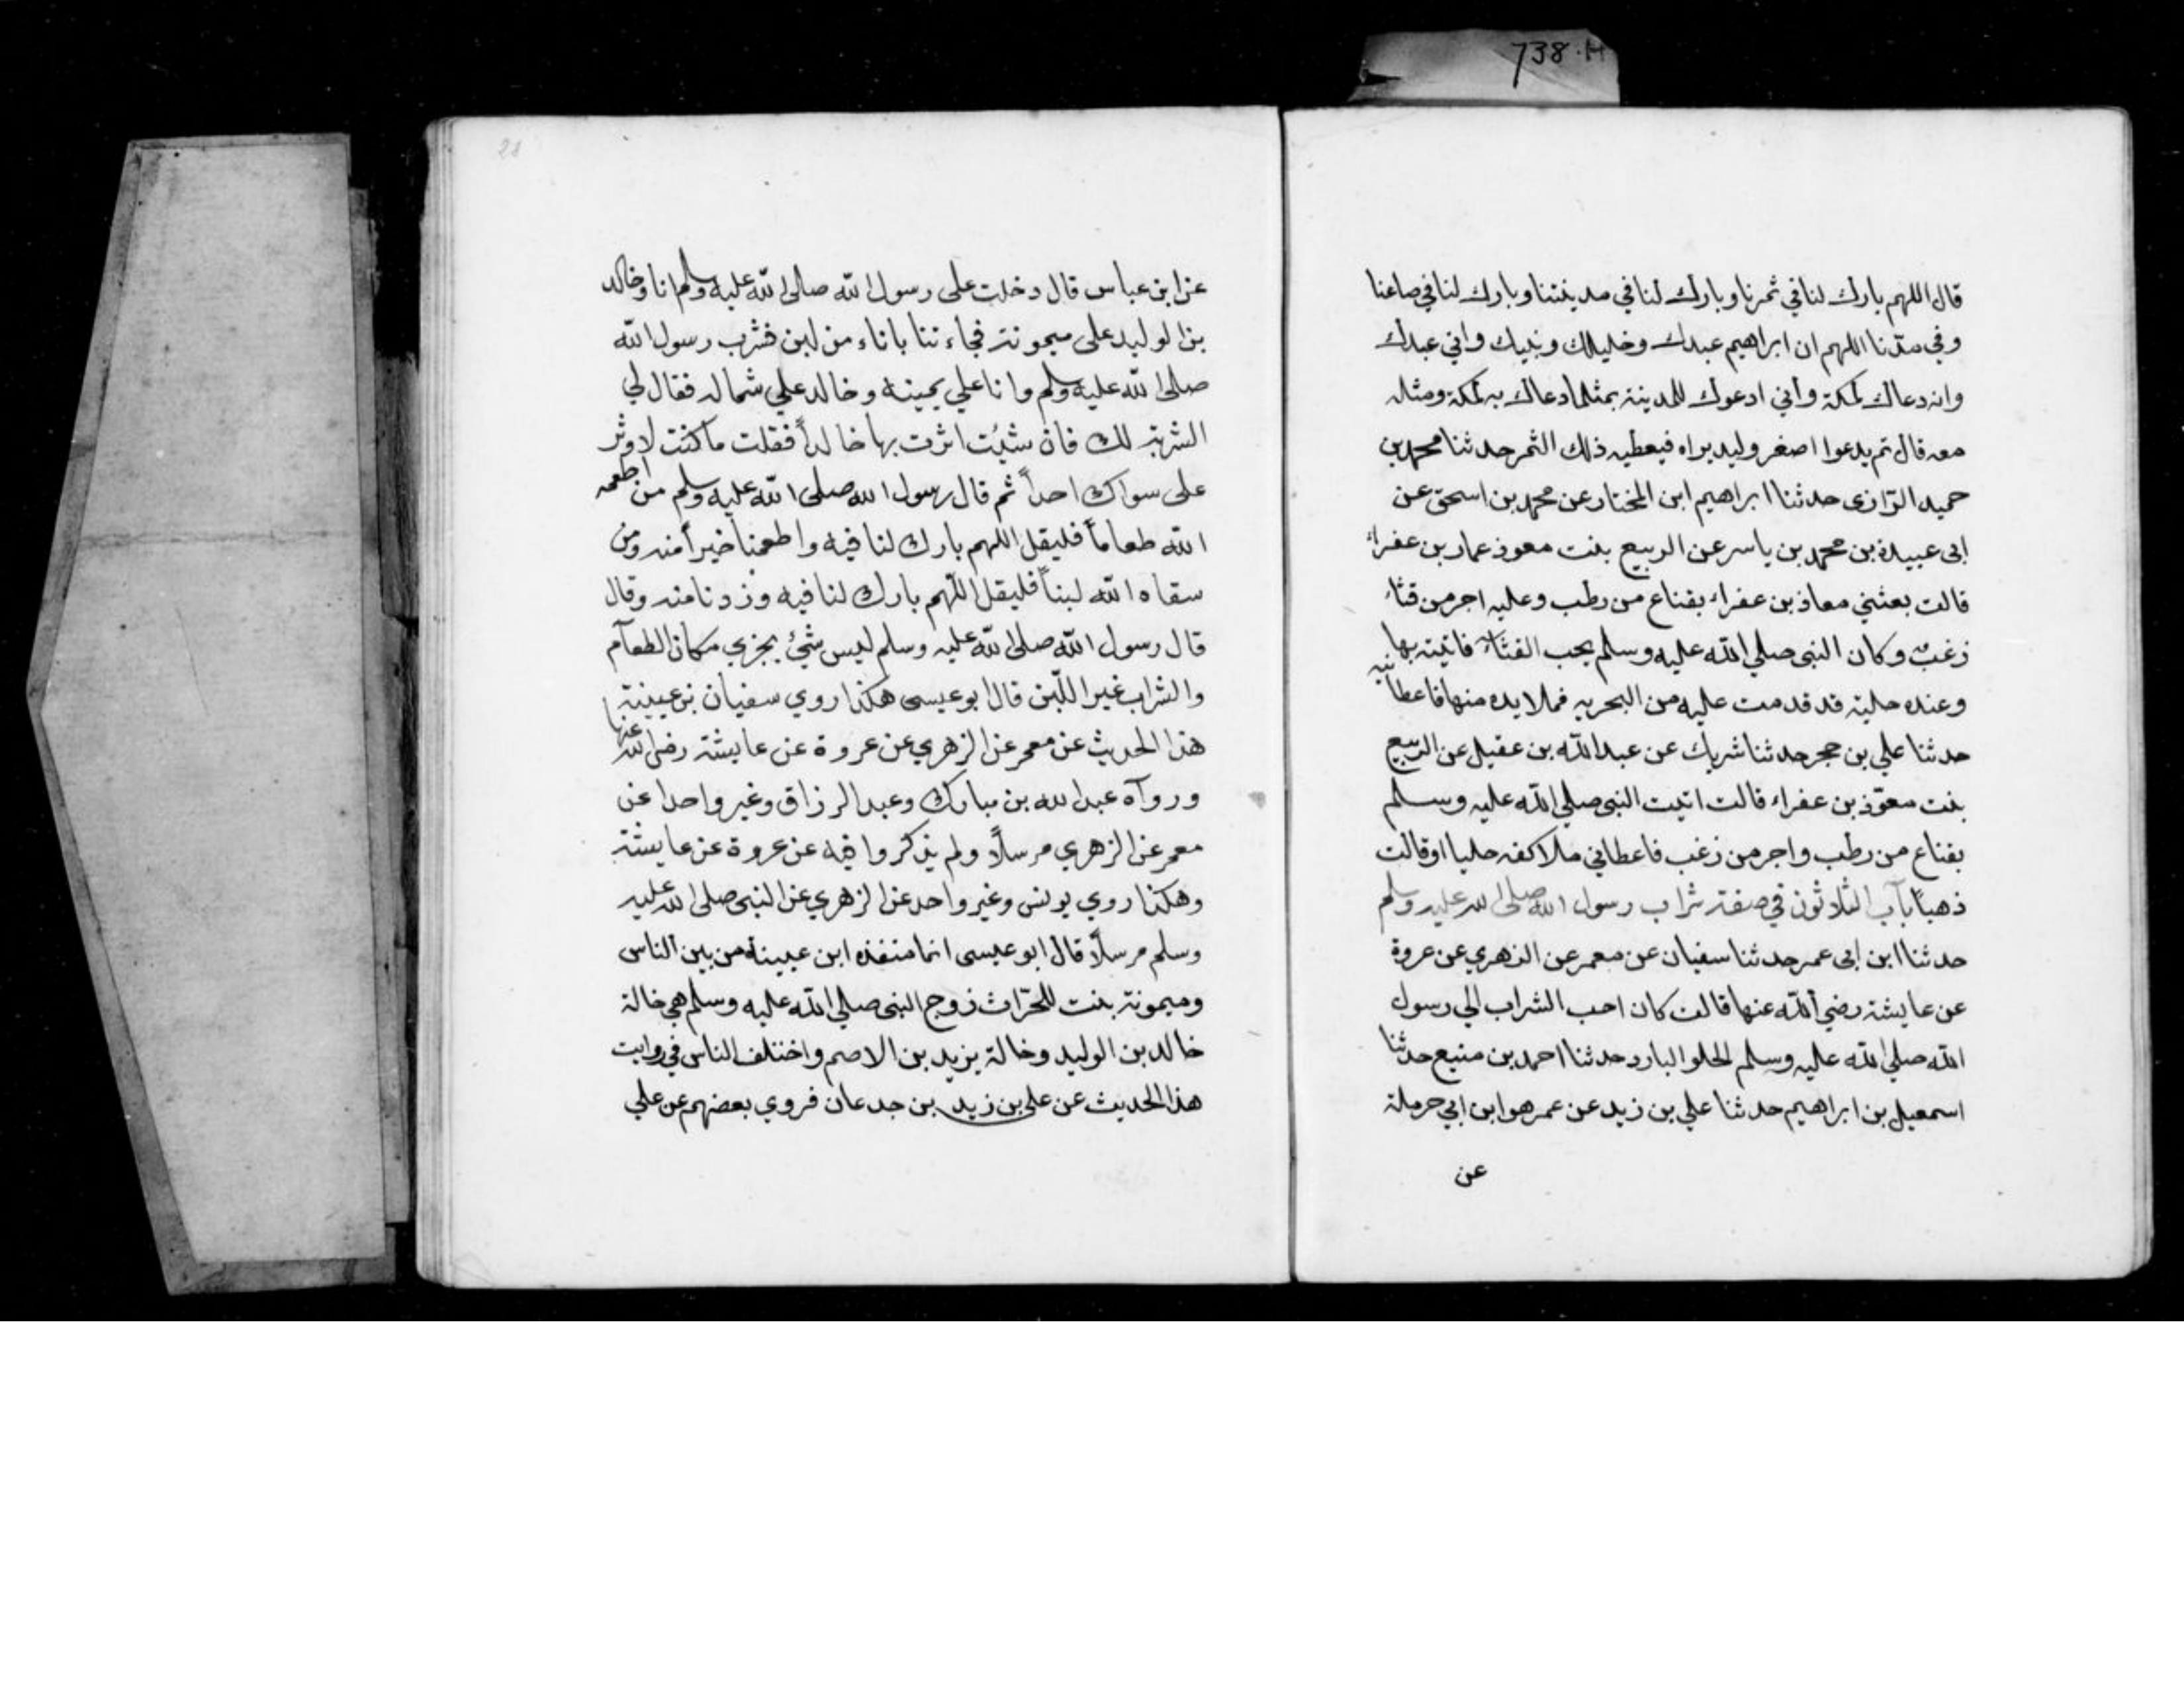 738.H
قال اللهم بارك لنا في ثمرنا وبارك لنا في مدينتنا وبارك لنا في صاعنا
وفي مدّنا اللهم ان ابراهيم عبدك وخليلك ونبيك واني عبدك
وانه دعاك لمكة وأني ادعوك للمدينة بمثل ما دعاك به لمكة ومثله
معه قال ثم يدعوا اصغر وليد يراه فيعطيه ذلك الثمر حدثنا محمد بن
حميد الرّازى حدثنا ابراهيم ابن المختار عن محمد بن اسحق عن
ابى عبيدة بن محمد بن ياسر عن الربيع بنت معوذ عمار بن عفراء
قالت بعثني معاذ بن عفراء بقناع من رطب وعليه اجر من قثاء
زغب وكان النبى صلي الله عليه وسلم يحب القثاء فاتيته بها
وعنده حلية قد قدمت عليه من البحرين فملا يده منها فاعطانيه
حدثنا علي بن حجر حدثنا شريك عن عبد الله بن عقيل عن الربيع
بنت معوّذ بن عفراء قالت اتيت النبى صلي الله عليه وسلم
بقناع من رطب واجر من زغب فاعطاني ملا كفه حليا او قالت
ذهبًا بآب الثلاثون في صفة شراب رسول الله صلى الله عليه وسلم
حدثنا ابن ابى عمر حدثنا سفيان عن معمر عن الزهري عن عروة
عن عايشة رضي الله عنها قالت كان احب الشراب الي رسول
الله صلي الله عليه وسلم الحلو البارد حدثنا احمد بن منيع حدثنا
اسمعيل بن ابراهيم حدثنا علي بن زيد عن عمر هو ابن ابي حرملة
عن
28
عن ابن عباس قال دخلت على رسول الله صلى الله عليه وسلم انا وخالد
بن الوليد على ميمونة فجاءتنا باناء من لبن فشرب رسول الله
صلى الله عليه وسلم وانا علي يمينه وخالد علي شماله فقال لي
الشربة لك فان شئت اثرت بها خالداً فقلت ما كنت لاوثر
على سواك احداً ثم قال رسول الله صلى الله عليه وسلم من اطعمه
الله طعاماً فليقل اللهم بارك لنا فيه واطعمنا خيراً منه ومن
سقاه الله لبناً فليقل اللّهم بارك لنا فيه وزدنا منه وقال
قال رسول الله صلى الله عليه وسلم ليس شئ يجزي مكان الطعآم
والشراب غير اللّبن قال ابو عيسى هكذا روي سفيان بن عيينة
هذا الحديث عن معمر عن الزهري عن عروة عن عايشة رضى الله عنها
وروآه عبد الله بن مبارك وعبد الرزاق وغير واحدا عن
معمر عن الزهري مرسلاً ولم يذكروا فيه عن عروة عن عايشة
وهكذا روي يونس وغير واحد عن الزهري عن النبى صلى الله عليه
وسلم مرسلاً قال ابو عيسى انما متفذه ابن عيينة من بين الناس
وميمونة بنت للحرّاث زوج النبى صلي الله عليه وسلم هي خالة
خالد بن الوليد وخالة يزيد بن الاصم واختلف الناس في روايت
هذا الحديث عن على بن زيد بن جدعان فروي بعضهم عن علي